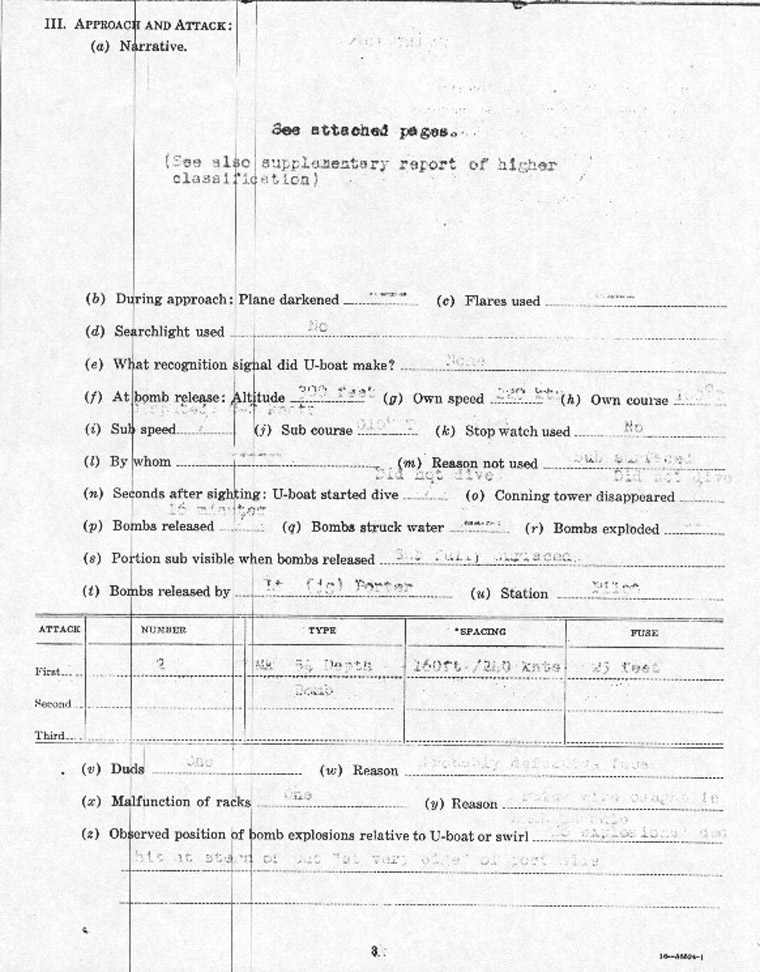 III. APPROACH AND ATTACK:
(a) Narrative.
See attached pages.
(See also supplementary report of higher
classification)
(b) During approach: Plane darkened (c) Flares used
(d) Searchlight used No
(e) What recognition signal did U-boat make? None
(f) At bomb release: Altitude feet (g) Own speed (h) Own course
(i) Sub speed (j) Sub course 010° T (k) Stop watch used No
(l) By whom (m) Reason not used Sub surfaced
Did not dive Did not dive
(n) Seconds after sighting: U-boat started dive (o) Conning tower disappeared
16 minutes
(p) Bombs released (q) Bombs struck water (r) Bombs exploded
(s) Portion sub visible when bombs released Sub fully surfaced
(t) Bombs released by Lt (jg) Porter (u) Station Pilot
ATTACK NUMBER TYPE *SPACING FUSE
First 2 MK 54 Depth 160ft./240 knts 25 feet
Second Bomb
Third
(v) Duds One (w) Reason Probably defective fuse
(x) Malfunction of racks One (y) Reason
(z) Observed position of bomb explosions relative to U-boat or swirl
hit at stern or but "at very edge" of port side
3
16—35524-1